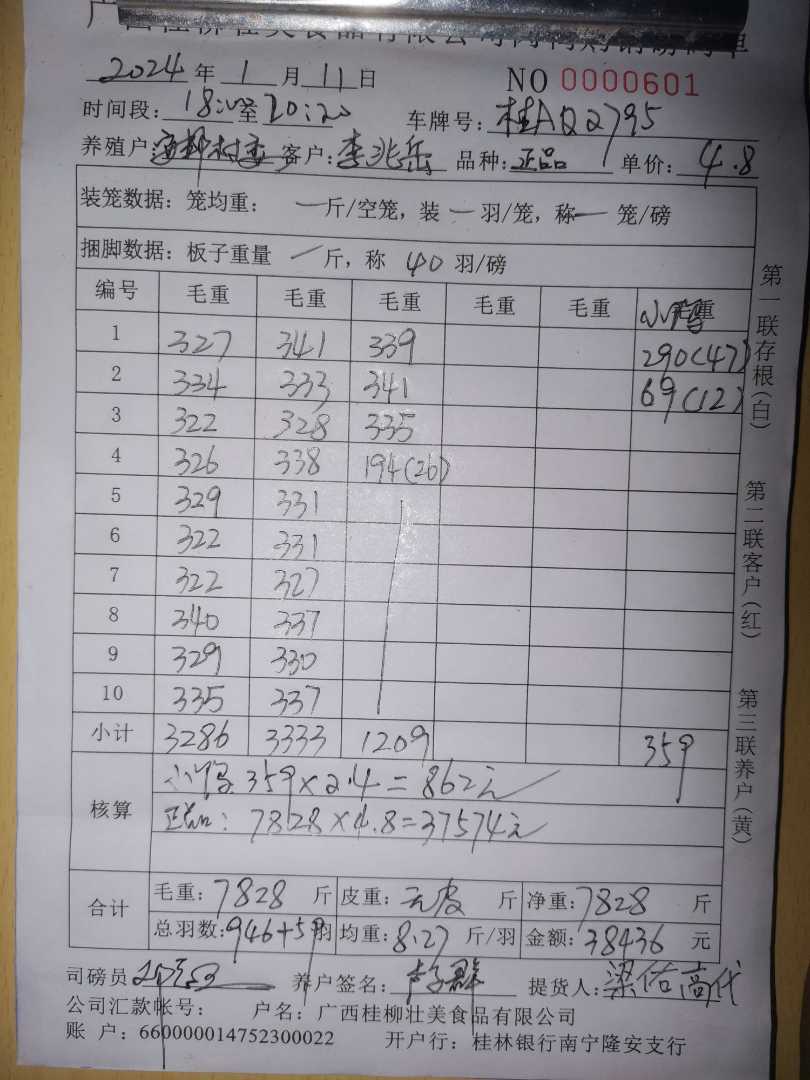 广西桂柳壮美食品有限公司肉鸭购销磅码单
2024 年 1 月 11 日 NO 0000601
时间段: 18:00至 20:20 车牌号: 桂AQ2795
养殖户: 村委 客户: 李兆岳 品种: 正品 单价: 4.8
装笼数据: 笼均重: 一斤/空笼, 装 一 羽/笼, 称一 笼/磅
捆脚数据: 板子重量 一 斤, 称 40 羽/磅
编号 毛重 毛重 毛重 毛重 毛重 毛重
1 327 341 339 290(47)
2 334 333 341 69(12)
3 322 328 335
4 326 338 194(26)
5 329 331
6 322 331
7 322 327
8 340 337
9 329 330
10 335 337
小计 3286 3333 1209 359
核算
小鸭 359×2.4=862元
正品: 7828×4.8=37574元
合计
毛重: 7828 斤 皮重: 去皮 斤 净重: 7828 斤
总羽数: 946+59羽 均重: 8.27 斤/羽 金额: 38436 元
司磅员 养户签名: 提货人: 梁佑高代
公司汇款帐号: 户名: 广西桂柳壮美食品有限公司
账 户: 660000014752300022 开户行: 桂林银行南宁隆安支行
第一联存根(白)
第二联客户(红)
第三联养户(黄)